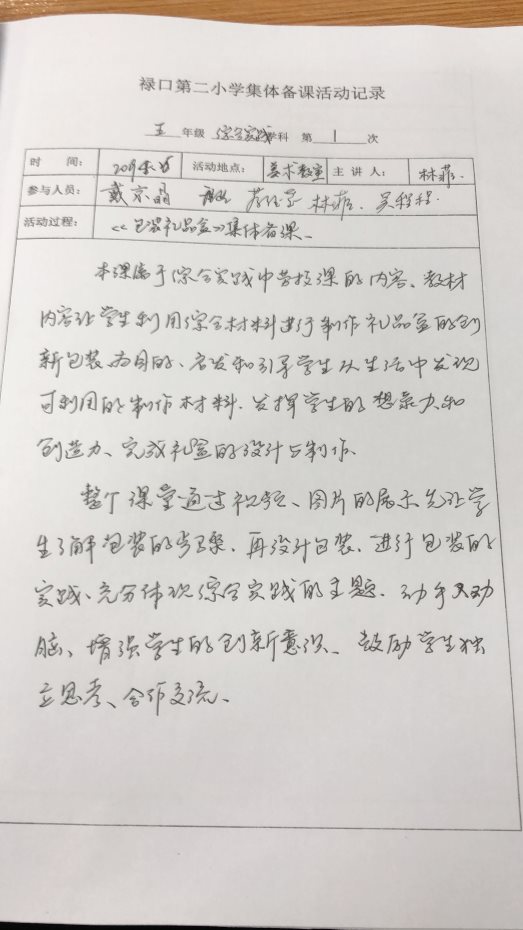 禄口第二小学集体备课活动记录
五 年级 综合实践 学科 第 1 次
时 间： 活动地点： 美术教室 主 讲 人： 林菲.
参与人员： 戴京晶 林菲. 吴程程.
活动过程： 《包装礼品盒》集体备课.
本课属于综合实践中劳技课的内容、教材
内容让学生利用综合材料进行制作礼品盒的创
新包装为目的、启发和引导学生从生活中发现
可利用的制作材料. 发挥学生的想象力和
创造力、完成礼盒的设计与制作.
整个课堂通过视频、图片的展示先让学
生了解包装的步骤. 再设计包装. 进行包装的
实践、充分体现综合实践的主题. 动手又动
脑、增强学生的创新意识、鼓励学生独
立思考、合作交流.